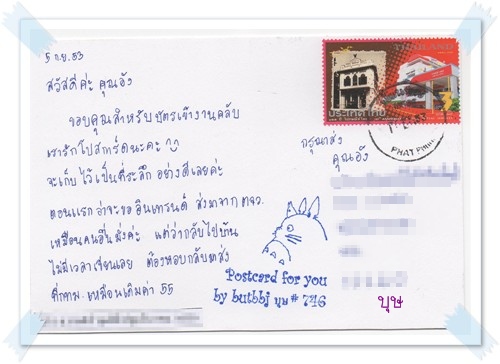 5 ก.ย. 53
สวัสดีค่ะ คุณอัง
ขอบคุณสำหรับบัตรเข้างานคลับ
เรารักโปสการ์ดนะคะ
จะเก็บไว้เป็นที่ระลึก อย่างดีเลยค่ะ
ตอนแรกว่าจะขออินเทรนด์ ส่งมาจาก ตจว.
เหมือนคนอื่นมั่งค่ะ แต่ว่ากลับไปบ้าน
ไม่มีเวลาเขียนเลย ต้องหอบกลับมาส่ง
ที่กทม. เหมือนเดิมค่า 55
THAILAND
ประเทศไทย
กรุณาส่ง
คุณอัง
บุษ
Postcard for you
by butbbj บุษ # 746